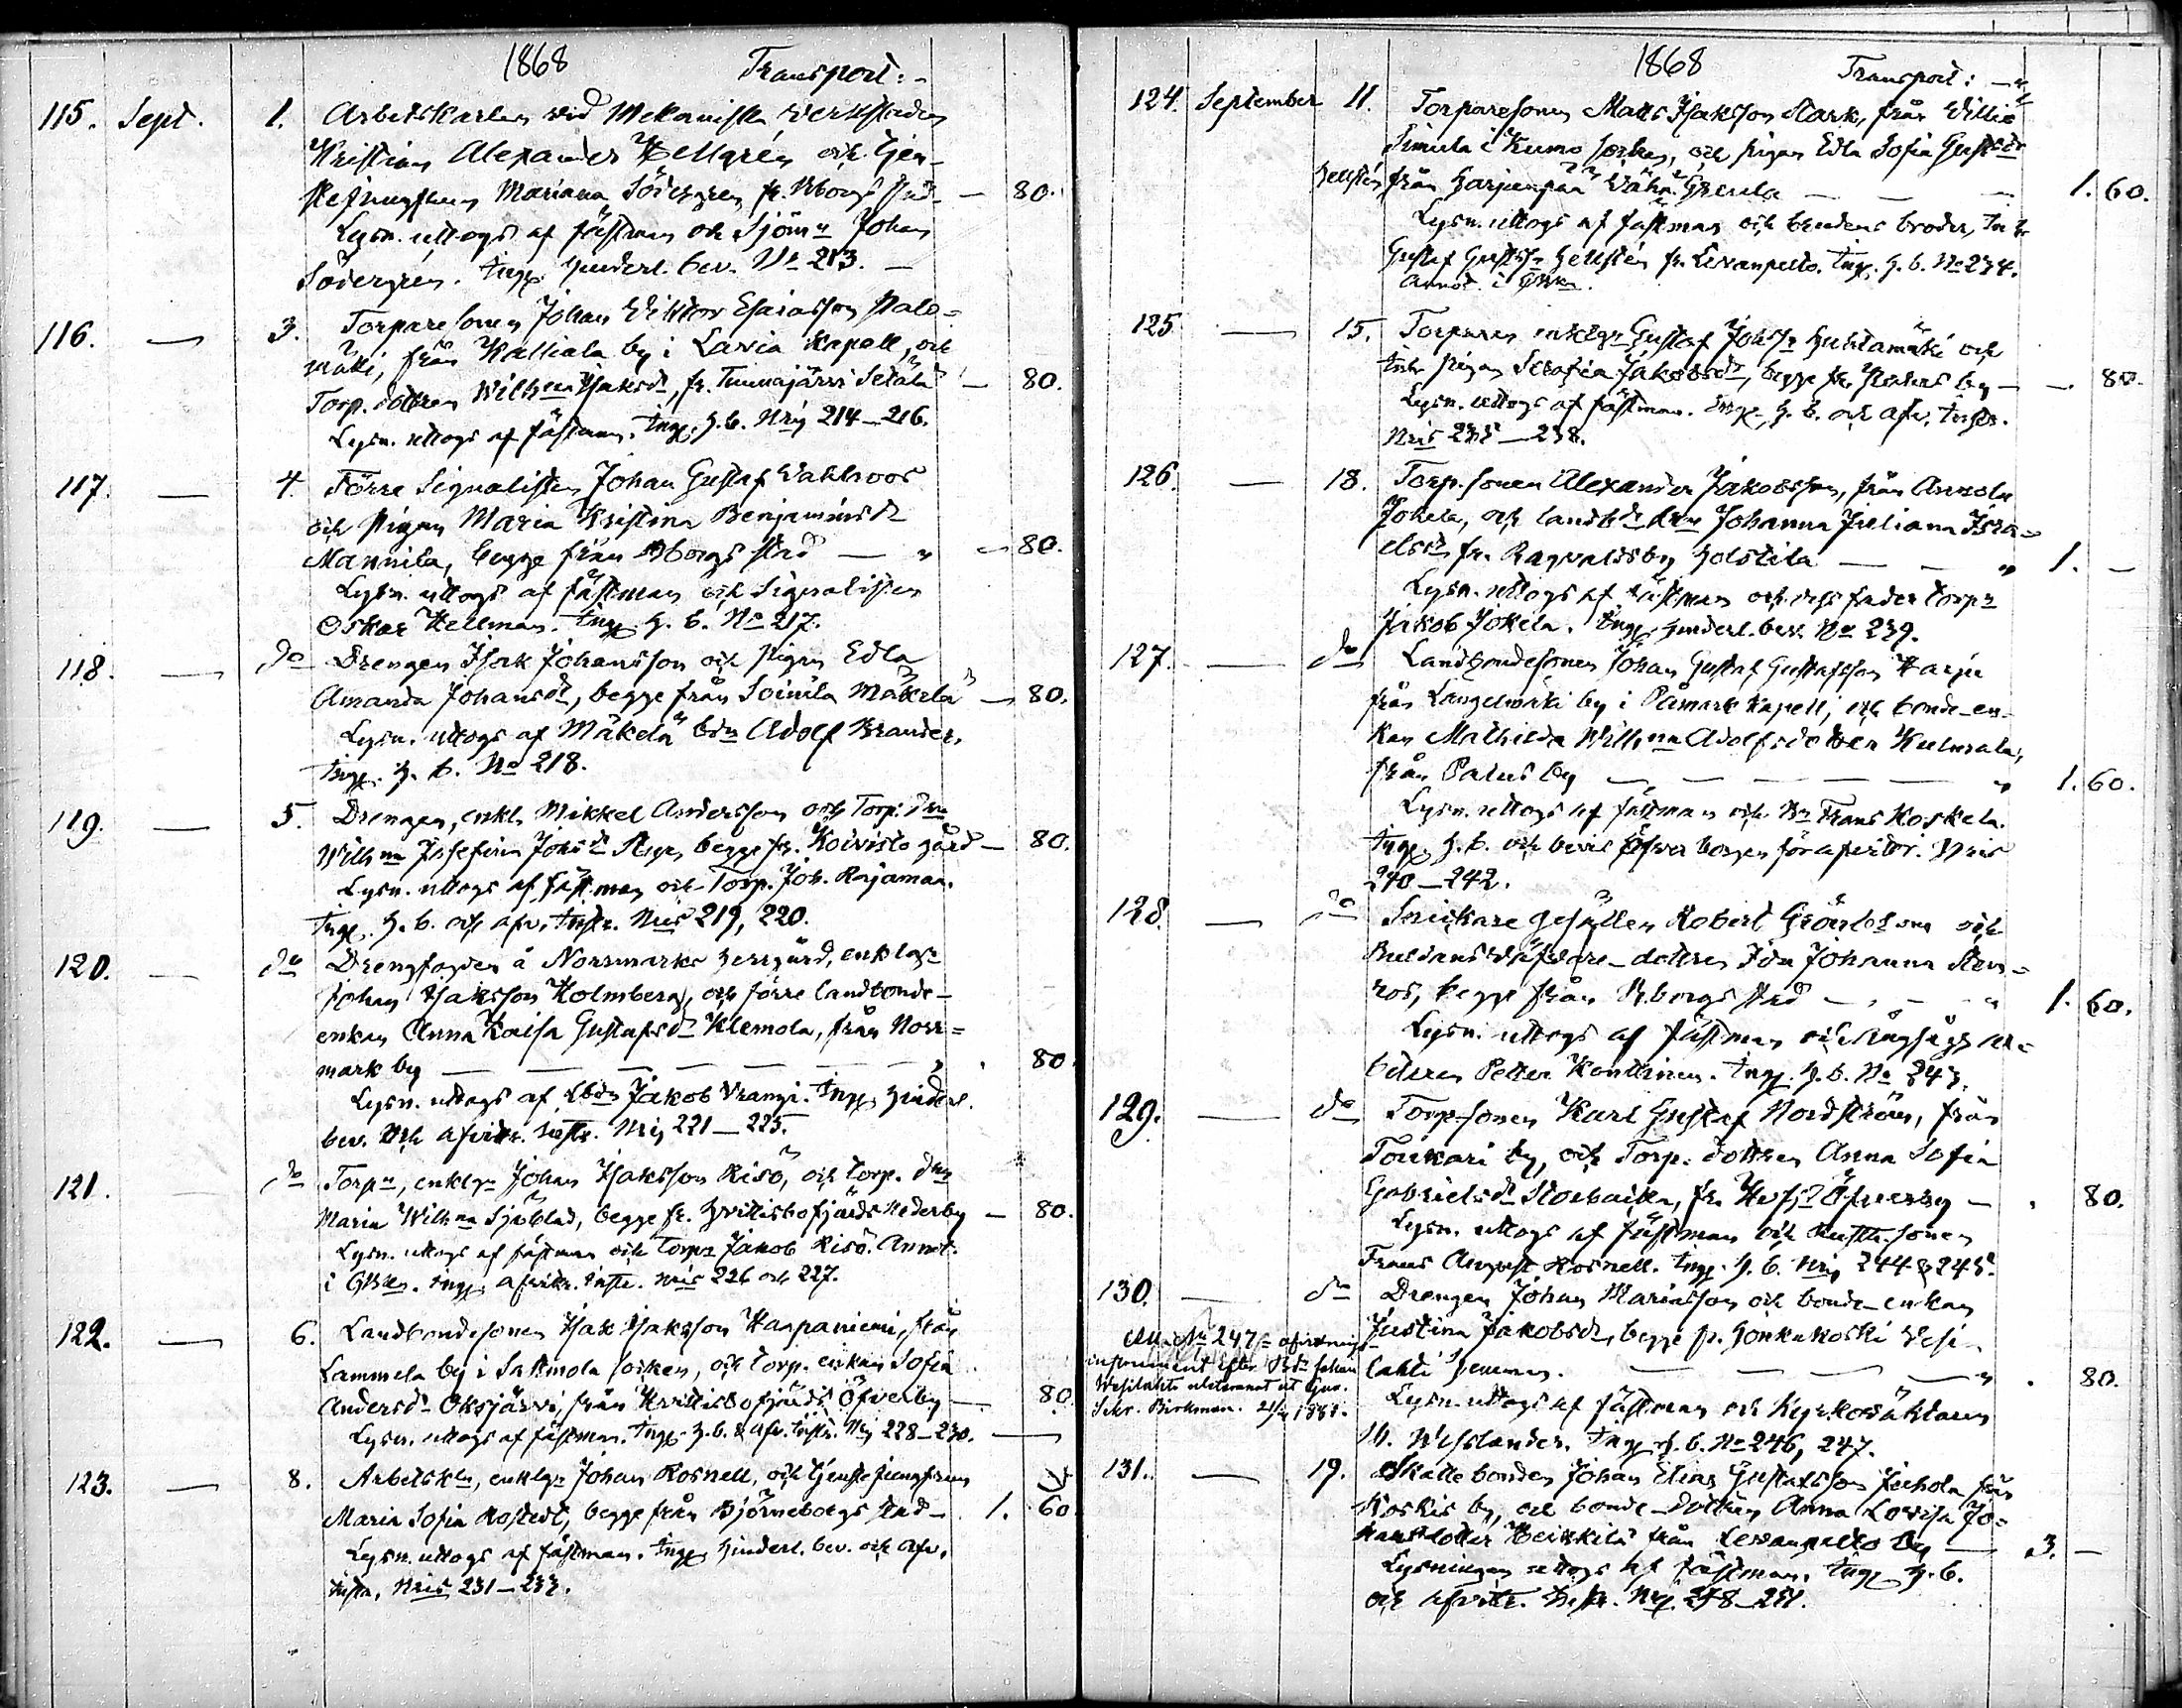 1868 Transport: -
115. Sept. 1. Arbetskarlen vid Mekaniska Verkstaden
Kristian Alexander Hellgrén och Tjen-
stejungfrun Mariana Södergren fr. Bborgs stad - 80.
Lysn. uttogs af fästman och Sjöm:n Johan
Södergrén. Ingg. hinderl. bev. No 213. -
116. — 3. Torparesonen Johan Viktor Esaiasson Palo-
mäki, från Kalliala by i Lavia Kapell, och
Torp. dottren Wilh:na Isaksdr, fr. Tuunajärvi Setälä — 80.
Lysn. uttogs af fästman. Ingg. h.b. Nris 214-216.
117. — 4. Förre Signalisten Johan Gustaf Wahlroos
och pigan Maria Kristina Benjaminsdr
Mannila, begge från Bborgs stad — " — 80.
Lysn. uttogs af fästman och Signalisten
Oskar Hellman. Ingg. h. b. No 217.
118. — do Drengen Isak Johansson och pigan Edla
Amanda Johansdr, begge från Soinila Mäkelä — 80.
Lysn. uttogs af Mäkelä bdn Adolf Brander.
Ingg. h. b. No 218.
119. — 5. Drengen, enkl. Mikkel Andersson och Torp. dtrn
Wilh:na Josefina Johsdr, begge fr. Koivisto gård — 80.
Lysn. uttogs af fästman och Torp. Joh. Rajamaa.
Ingg. h. b. och afv. instr. Nris 219, 220.
120. — do Drengfogden å Norrmarks herrgård, enklgn
Johan Isaksson Holmberg, och förre landbonde-
enkan Anna Kaisa Gustafsdr Klemola, från Norr-
mark by — — — — — " . 80.
Lysn. uttogs af Lbdn Jakob Vrangi. Ingg. hinderl.
bev. och afvittr. instr. Nris 221-225.
121. do Torp:n, enklgn Johan Isaksson Risö, och torp. dtrn
Maria Wilh:na Sjöblad, begge fr. Hvittisbofjärds Nederby — 80.
Lysn. uttogs af fästman och Torp:n Jakob Risö. Annot.
i GBken. Ingg. afvittr. instr. Nris 226 och 227.
122. — 6. Landbondesonen Isak Isaksson Haapaniemi, från
Lammela by i Sastmola socken, och torp. enkan Sofia
Andersdr Oksjärvi, från Hvittisbofjärds Öfverby — 80.
Lysn. uttogs af fästman. Ingg. h.b. & afv. instr. Nris 228-230. —
123. — 8. Arbetskln, enklgn Johan Rosnell, och tjenstejungfrun
Maria Sofia Rostedt, begge från Björneborgs stad — 1. 60.
Lysn. uttogs af fästman. Ingg. hinderl. bev. och afv.
instr. Nris 231-233.
1868 Transport: —"
124. September 11. Torparesonen Matts Isaksson Stark, från Villiö
Simula i Kumo socken, och pigan Edla Sofia Gustsdr
Hellstén från Harjunpää Wäh. — — 1. 60.
Lysn. uttogs af fästman och brudens broder,
Gustaf Gustsn Hellstén fr. Levanpelto. Ingg. h. b. No 234.
Annot. i GBken.
125. — 15. Torparen enklgn Gustaf Johsn Huhtamäki och
Serafia Jakobsdr, begge fr. by — — 80.
Lysn. uttogs af fästman. Ingg. h. b. och afv. instr.
Nris 235-238.
126. — 18. Torp. sonen Alexander Jakobsson, från Anola
Jokela, och landbdedtrn Johanna Juliana Isra-
elsdr fr. Ragvaldsby Holstila — — " 1. —
Lysn. uttogs af fästman och dess fader torp:n
Jakob Jokela. Ingg. hinderl. bev. No 239.
127. — do Landbondesonen Johan Gustaf Gustafsson Harju
från Langelmäki by i Påmark kapell, och bonde-en-
kan Mathilda Wilh:na Adolfsdotter Kulmala,
från Palus by — — — — — " 1. 60.
Lysn. uttogs af fästman och Bn Frans Koskela.
Ingg. h. b. och bevis öfver borgen för afvittr. Nris
240-242.
128. — do Snickare gesällen Robert Grönblom och
Buldansväfvare-dottren Ida Johanna Sten-
ros, begge från Bborgs stad — — — " 1. 60.
Lysn. uttogs af fästman och Ångsågs ar-
betaren Petter Konttinen. Ingg. h. b. No 243.
129. — do Torp.sonen Karl Gustaf Nordström, från
Toukari by, och Torp. dottren Anna Sofia
Gabrielsdr Storbacka, fr. Hvfs Öfverby — . 80.
Lysn. uttogs af fästman och Rusth.sonen
Frans August Rosnell. Ingg. h. b. Nris 244 & 245.
130. — do Drengen Johan Mariasson och bonde-enkan
Justina Jakobsdr, begge fr. Gönkakoski Vesi-
lahti hemman. — — — —" . 80.
Lysn. uttogs af fästman och kyrkoväktaren
M. Wesslander. Ingg. h. b. No 246, 247.
Anm. No 247 = afvittrings-
instrument efter Bdn Johan
Wesilahti utlemnat åt Guv.
Sekr. Björkman. 21/4 1881.
131. — 19. Skattebonden Johan Elias Gustafsson Juhola från
Koskis by, och bonde-dottren Anna Lovisa Jo-
hansdotter Heikkilä från Levanpelto by — 3. —
Lysningen uttogs af fästman. Ingg. h. b.
och afvittr. instr. Nris 248-251.